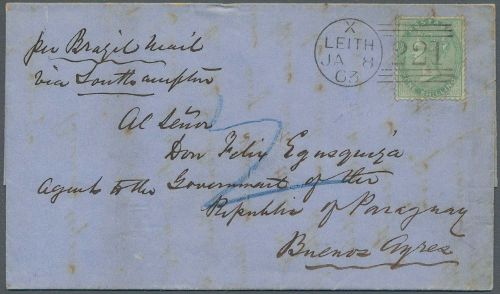 per Brazil Mail
via Southampton
X
LEITH
JA 8
63
221
Al Señor
Don Felix Egusquiza
Agent to the Government of the
Republic of Paraguay
Buenos Ayres